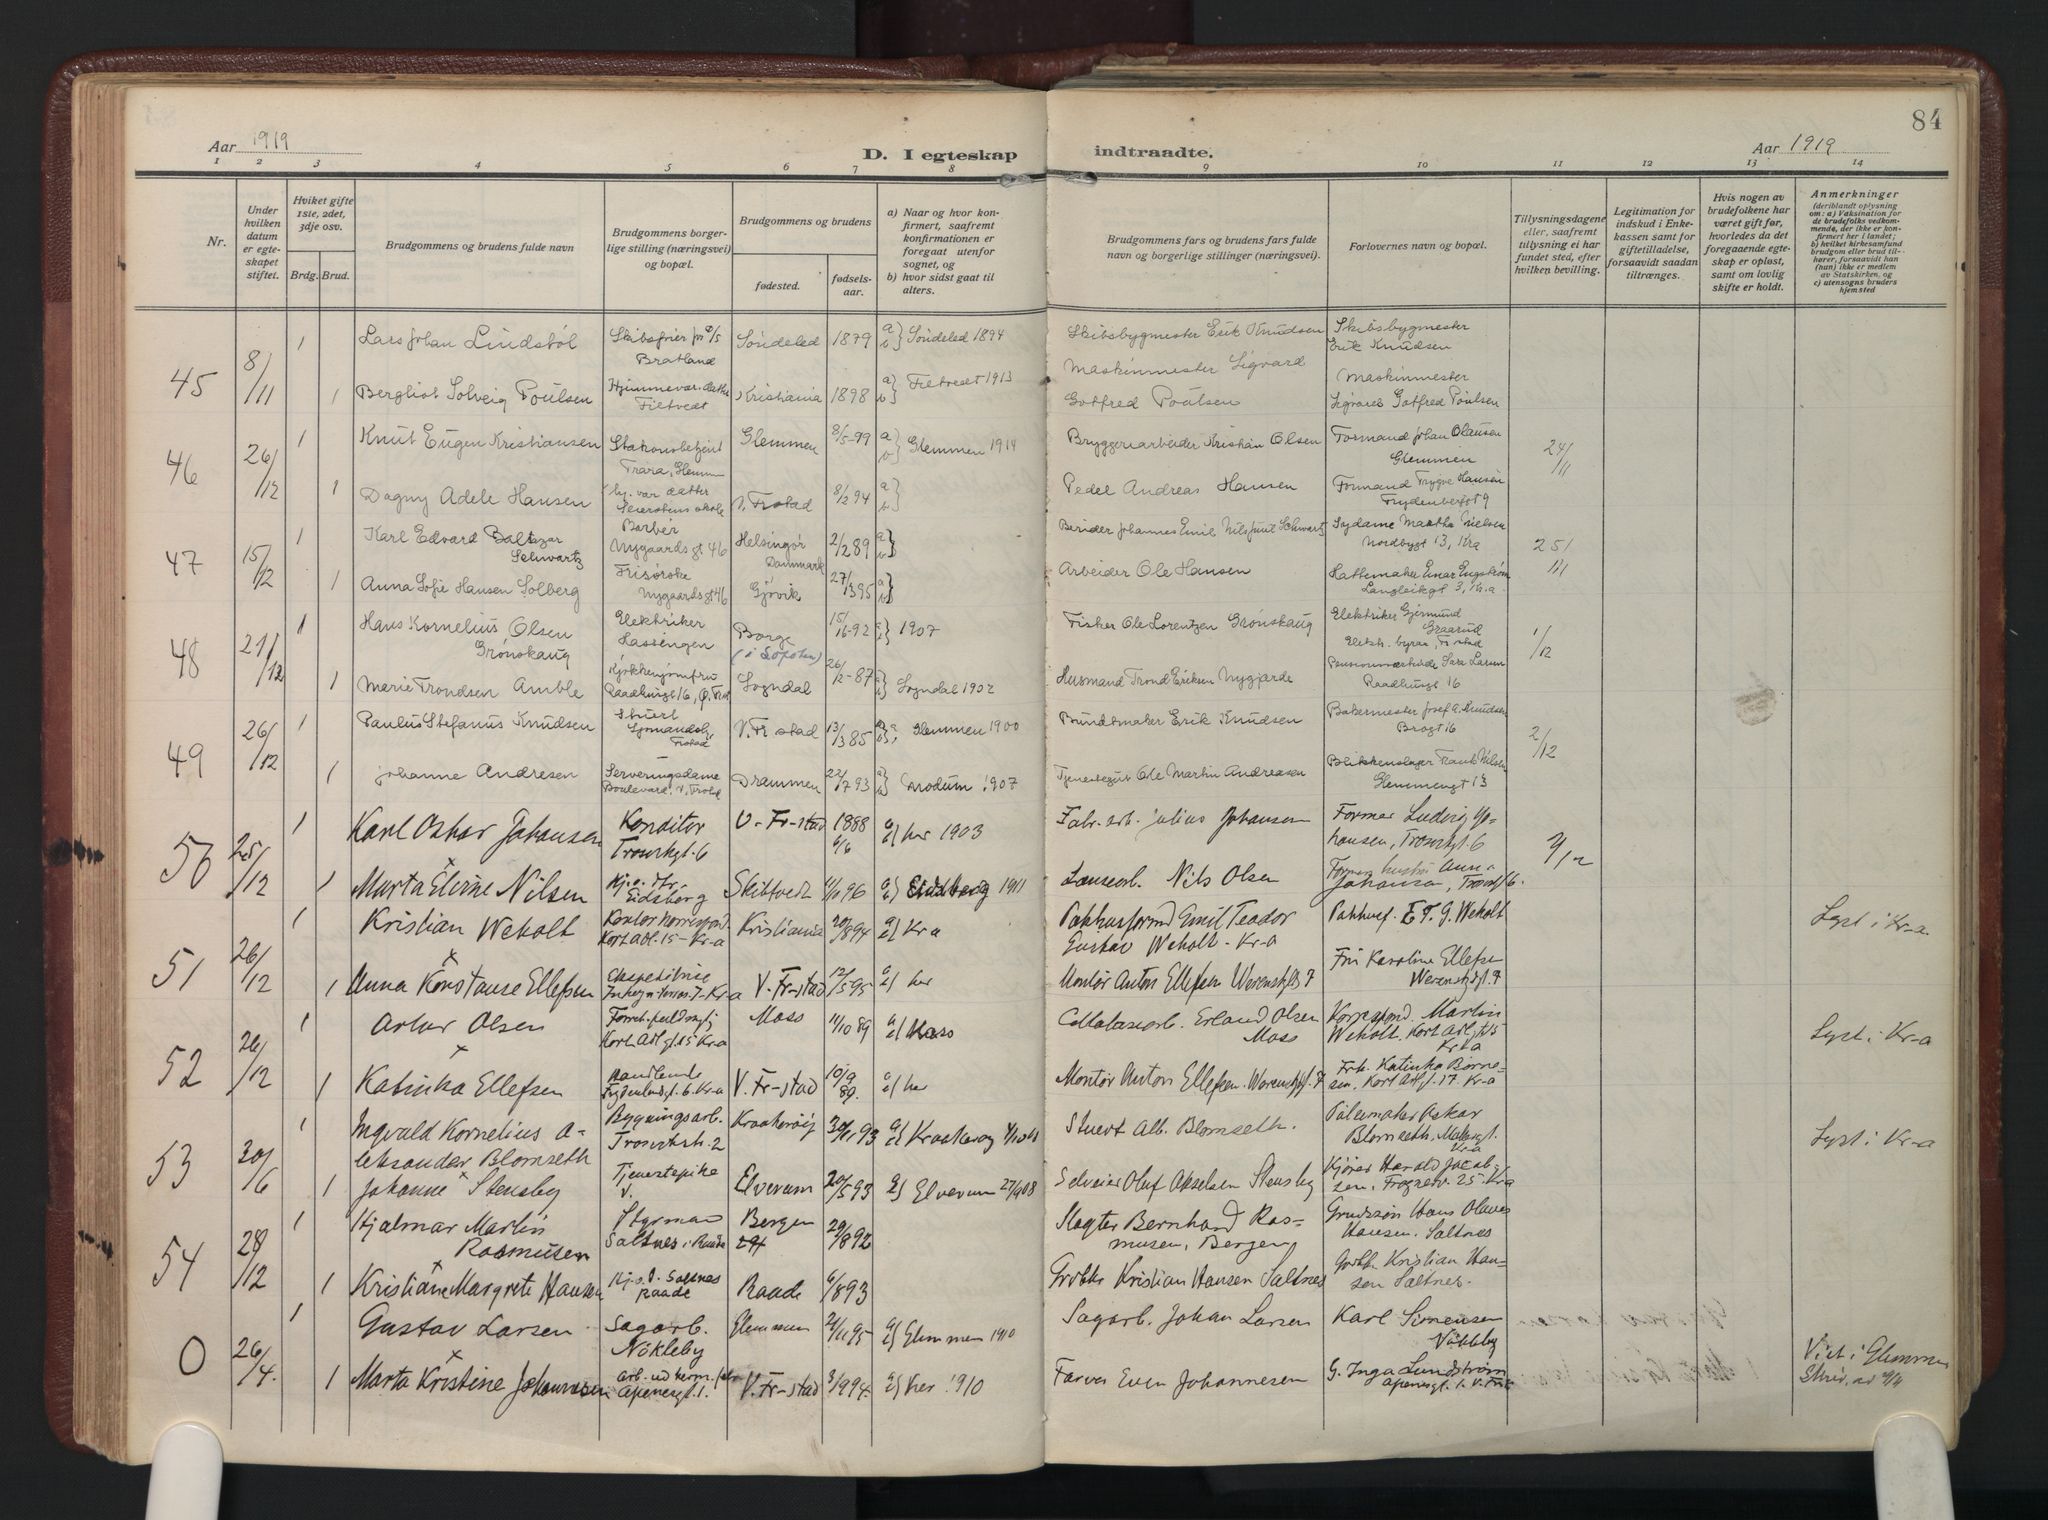 84
Aar 1919
D. I egteskap
indtraadte.
Aar 1919
1 2 3 4 5 6 7 8 9 10 11 12 13 14
Nr.
Under hvilken datum er egteskapet stiftet.
Hviket gifte 1ste, 2det, 3dje osv.
Brdg. Brud.
Brudgommens og brudens fulde navn
Brudgommens borgerlige stilling (næringsvei) og bopæl.
Brudgommens og brudens
fødested.
fødselsaar.
a) Naar og hvor konfirmert, saafremt konfirmationen er foregaaet utenfor sognet, og
b) hvor sidst gaat til alters.
Brudgommens fars og brudens fars fulde navn og borgerlige stillinger (næringsvei).
Forlovernes navn og bopæl.
Tillysningsdagene eller, saafremt tillysning ei har fundet sted, efter hvilken bevilling.
Legitimation for indskud i Enkekassen samt for giftetilladelse, forsaavidt saadan tiltrænges.
Hvis nogen av brudefolkene har været gift før, hvorledes da det foregaaende egteskap er opløst, samt om lovlig skifte er holdt.
Anmerkninger
(deriblandt oplysning om: a) Vaksination for de brudefolks vedkommende, der ikke er konfirmert her i landet; b) hvilket kirkesamfund brudgom eller brud tilhører, forsaavidt han (hun) ikke er medlem av Statskirken, og c) utensogns bruders hjemsted
45 8/11 1 Lars Johan Lindstöl Bratland Söndeled 1879 a b} Söndeled 1894 Skibsbygmester Erik Knudsen Skibsbygmester Erik Knudsen
1 Bergliot Solveig Poulsen Filtvedt Kristiania 1898 a b} Filtvedt 1913 Maskinmester Sigvard Gotfred Poulsen Maskinmester Sigvard Gotfred Poulsen
46 26/12 1 Knut Eugen Kristiansen Stationsbetjent Trara, Glemm Glemmen 8/5-99 a b} Glemmen 1914 Bryggeriarbeider Kristian Olsen Formand Johan Olausen Glemmen 24/11
1 Dagny Adele Hansen Hj. var. datter V. Frstad 8/2 94 a b} Pedel Andreas Hansen Formand Trygve Hansen Frydenbergt 9
47 15/12 1 Karl Edvard Baltzar Schwartz Barbér Nygaards gt 46 Helsingør Danmark 2/2 89 a b} Berider Johannes Emil Schwartz Sydame Martha Nielsen Nordbygt 13, Kra
1 Anna Sofie Hansen Solberg Frisörske Nygaards gt 46 Gjövik 27/3 95 a b} Arbeider Ole Hansen Hattemaker Einar Engström Langleikgt 3, Kr.a
48 21/12 1 Hans Kornelius Olsen Grönskaug Elektriker Hassingen Borge (i Lofoten) a b} 1907 Fisker Ole Lorentzen Grönskaug Elektriker Gjermund Graarud Elektr. byraa, Frstad 1/12
1 Marie Trondsen Amble Kjökkenjomfru Raadhusgt 16, Ø. Frst Sogndal 26/2-87 a b} Sogndal 1902 Husmand Trond Eriksen Nygjærde Sara Larsen Raadhusgt 16
49 26/12 1 Paulus Stefanus Knudsen Stuert V. Frstad 13/3 85 a b} Glemmen 1900 Buntmaker Erik Knudsen Bakermester Josef A. Knudsen Brogt 16 2/12
1 Johanne Andresen Serveringsdame Boulevard, V. Frstad Drammen 22/7 93 a b} Modum 1907 Tjenestegut Ole Martin Andreasen Blikkenslager Frants Nilsen Glemmengt 13
50 25/12 1 Karl Oskar Johansen Konditor Trosvikgt. 6 V. Fr-stad 1888 6/6 a b} her 1903 Fabr. arb. Julius Johansen Former Ludvig Johansen, Trosvikgt. 6
1 Marta Elvine Nilsen Eidsberg Skibtvedt 96 a b} Eidsberg 1911 Nils Olsen Anna Johansen
51 26/12 1 Kristian Weholt Kontorkorrespond. Kort Adl. 15 - Kr-a Kristiania 20/8 94 a b} Kr a Pakhusformd Emil Teodor Gustav Weholt - Kr-a Pakhusf. E. T. G. Weholt Lyst i Kr-a
1 Anna Konstanse Ellefsen Ekspeditrice V. Fr-stad 12/5 95 a b} her Montör Anton Ellefsen Werenskjgt 7 Fru Karoline Ellefsen Werenskjgt. 7
52 26/12 1 Artur Olsen Kort Adl gt. 15 Kr-a Moss 11/10 89 a b} Moss Cellulosearb. Erland Olsen Moss Korrespond. Martin Weholt. Kort Adl. gt 15 Kr-a Lyst i Kr-a
1 Katinka Ellefsen Handlende Frydenlundgt. 6 Kr-a V. Fr-stad 10/9 89. a b} her Montör Anton Ellefsen Werenskjgt. 7 Frk. Katinka Kort Adl gt. 17. Kr-a
53 30/6 1 Ingvald Kornelius Aleksander Blomseth Bygningsarb. Trosvikstr. 2 Kraakeröy 93 a b} Kraakeröy Stuert Alb. Blomseth. Oskar Blomseth Kr-a Lyst i Kr-a
1 Johanne Stensby Tjenestepike V. Elverum 20/5 93 a b} Elverum 27/9 08 Selveier Oluf Akselsen Stensby Kjörer Harald Jacobsen, Frognerv. 25 Kr-a
54 28/12 1 Hjalmar Martin Rasmusen Styrman Saltnes i Raade Bergen 29/8 92 Slagter Bernhard Rasmusen, Bergen Hans Olaves Hansen. Saltnes
1 Kristiane Margrete Hansen Saltnes Raade Raade 6/8 93 Kristian Hansen Saltnes Kristian Hansen Saltnes.
0 26/4. 1 Gustav Larsen Sagarb. Nökleby Glemmen 95 a b} Glemmen 1910 Sagarb. Johan Larsen Karl Simensen Nökleby Viet i Glemmen
1 Marta Kristine Johannesen Apenesgt. 1. V. Fr-stad 3/9 94. a b} her 1910 Farver Even Johannesen G. Inga Lundström Apenesgt. 1. V. Fr-st